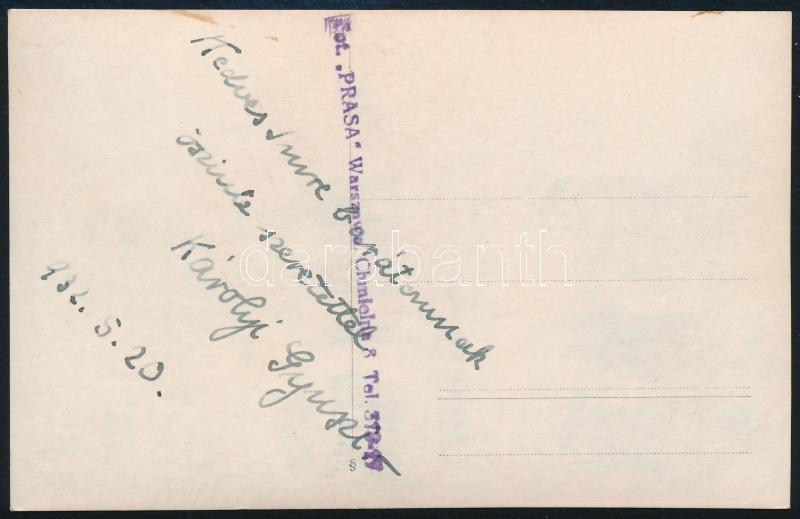 Kedves Imre barátomnak
őszinte szeretettel
Károlyi Gyuszi
932. 5. 20.
Fot. „PRASA" Warszawa, Chmielna 8 Tel.
S
darabanth